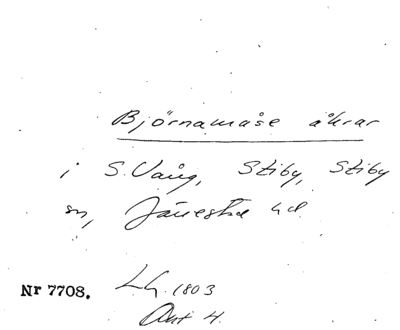 Björnamåse åkrar
i S. Vång, Stiby, Stiby
sn, Järrestad hd
Nr 7708. LH. 1803
Akt 4.